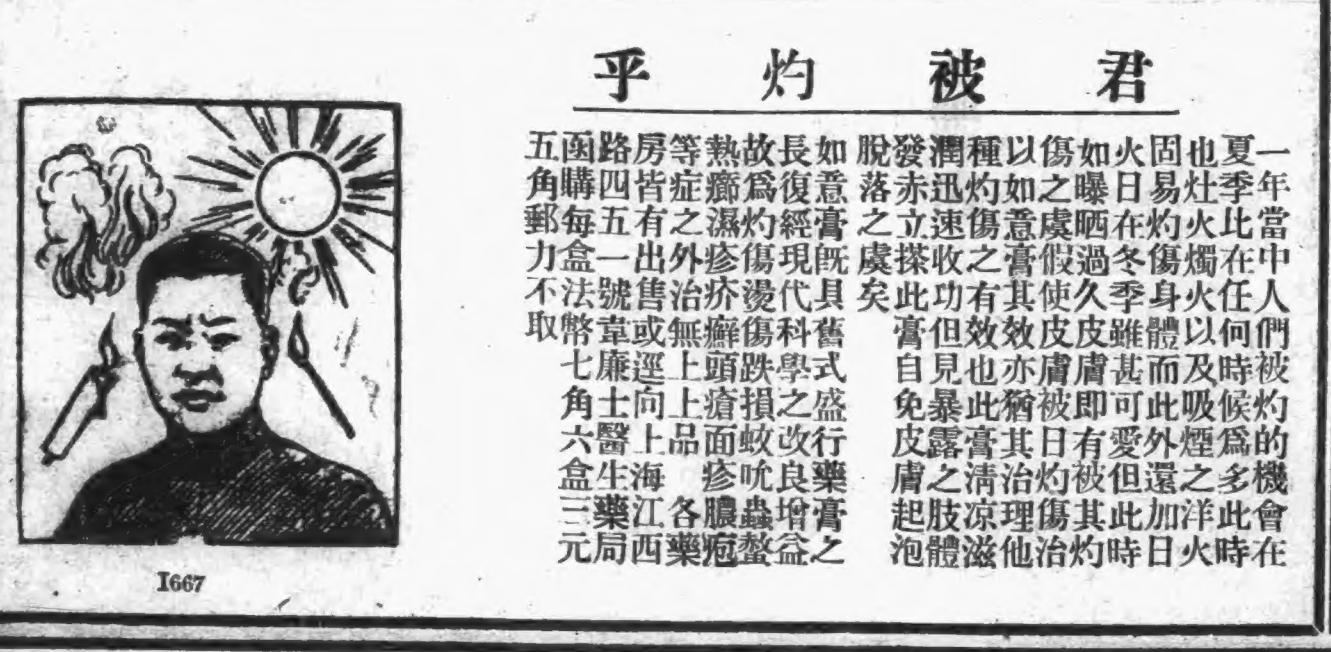 君被灼乎
一年當中人們被灼的機會在
夏季此在任何時候爲多此時
也灶火燭火以及吸煙之洋火
固易灼傷身體而此外還加日
火日在冬季雖甚可愛但此時
如曝晒過久皮膚即有被其灼
傷之虞假使皮膚被日灼傷治
以如意膏其效亦猶其治理他
種灼傷之有效也此膏清凉滋
潤迅速收功但見暴露之肢體
發赤立搽此膏自免皮膚起泡
脫落之虞矣
如意膏既具舊式盛行藥膏之
長復經現代科學之改良增益
故爲灼傷燙傷跌損蚊吮蟲螫
熱癤濕疹疥癬頭瘡面疹膿疱
等症之外治無上上品 各藥
房皆有出售或逕向上海江西
路四五一號韋廉士醫生藥局
函購每盒法幣七角六盒三元
五角郵力不取
I667